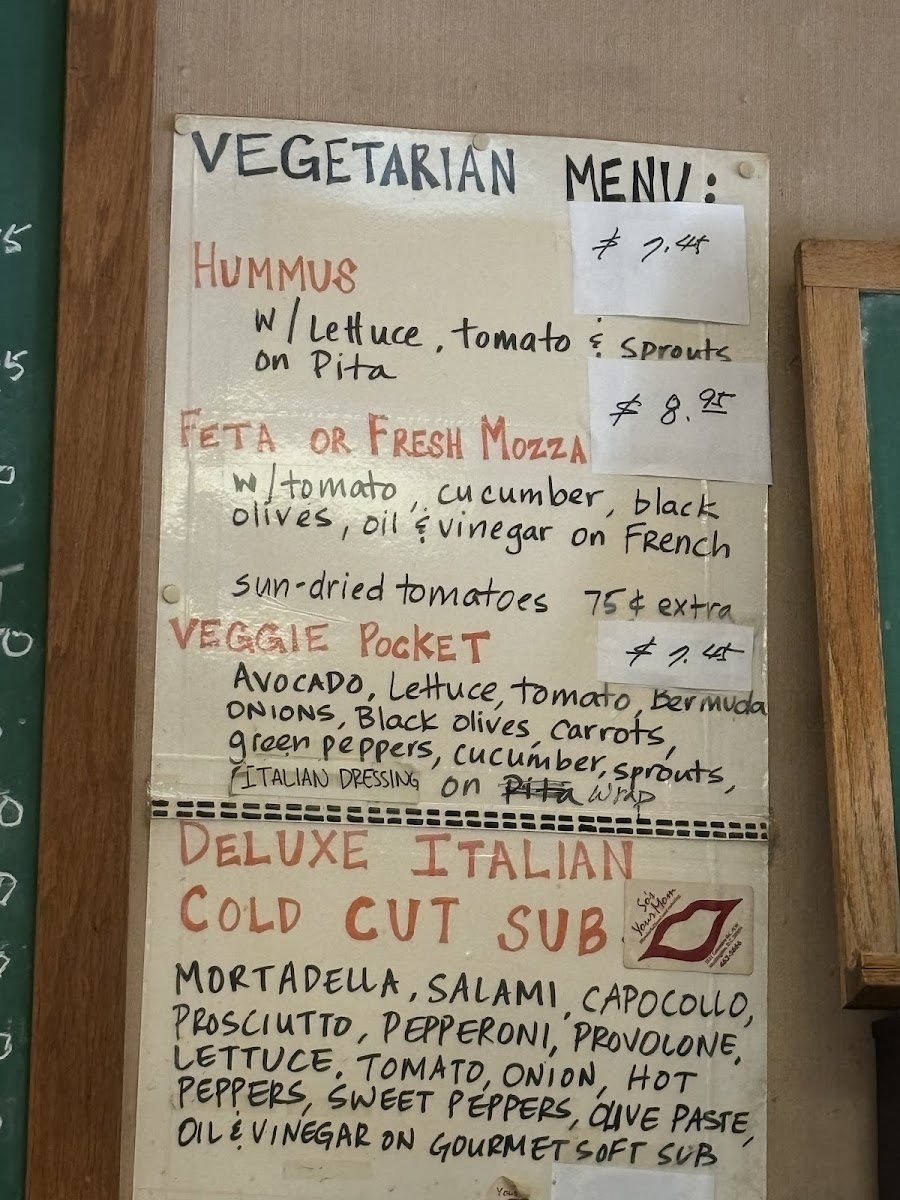 VEGETARIAN MENU:
$ 7.45
HUMMUS
w/Lettuce, tomato & sprouts
on Pita
$ 8.95
FETA OR FRESH MOZZA
w/tomato, cucumber, black
olives, oil & vinegar on French
sun-dried tomatoes 75¢ extra
VEGGIE POCKET $ 7.45
AVOCADO, Lettuce, tomato, Bermuda
ONIONS, Black olives, carrots,
green peppers, cucumber, sprouts,
ITALIAN DRESSING on Pita wrap
DELUXE ITALIAN
COLD CUT SUB
So's
Your Mom
MORTADELLA, SALAMI, CAPOCOLLO,
PROSCIUTTO, PEPPERONI, PROVOLONE,
LETTUCE, TOMATO, ONION, HOT
PEPPERS, SWEET PEPPERS, OLIVE PASTE,
OIL & VINEGAR ON GOURMET SOFT SUB